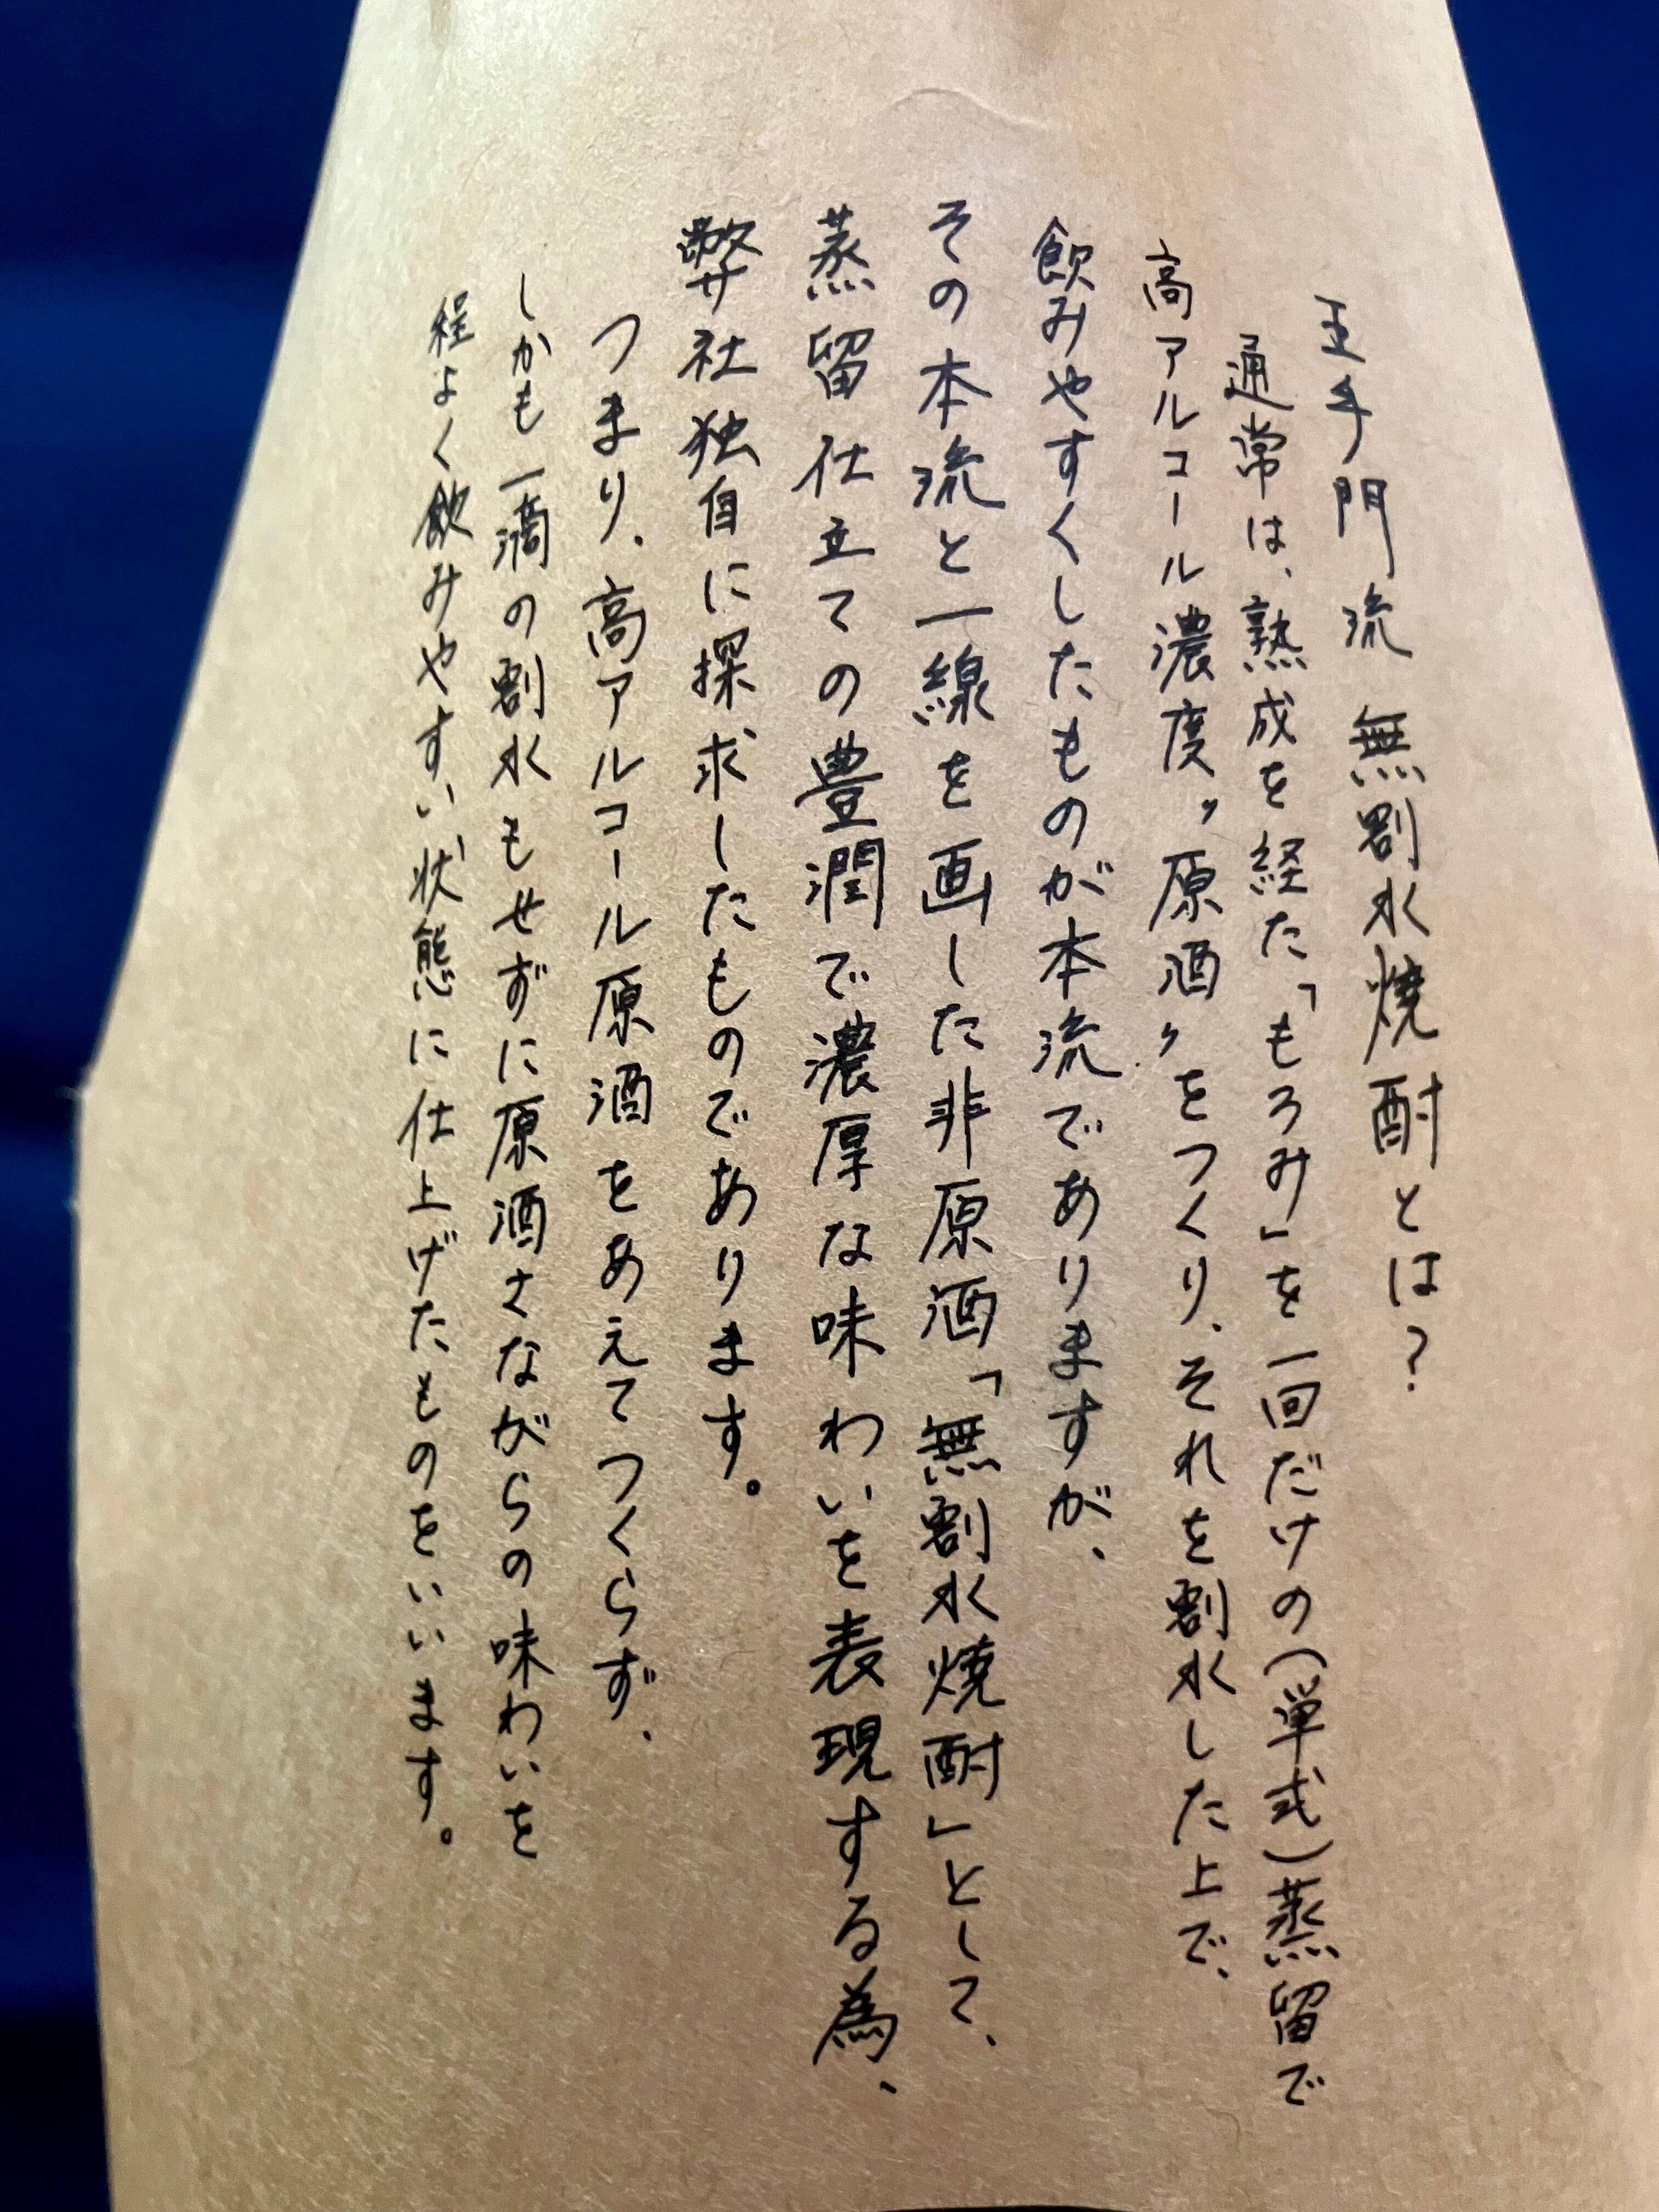 王手門流 無割水焼酎とは？
通常は、熟成を経た「もろみ」を一回だけの（単式）蒸留で
高アルコール濃度〝原酒〟をつくり、それを割水した上で、
飲みやすくしたものが本流でありますが、
その本流と一線を画した非原酒「無割水焼酎」として、
蒸留仕立ての豊潤で濃厚な味わいを表現する為、
弊社独自に探求したものであります。
つまり、高アルコール原酒をあえてつくらず、
しかも一滴の割水もせずに原酒さながらの味わいを
程よく飲みやすい状態に仕上げたものをいいます。